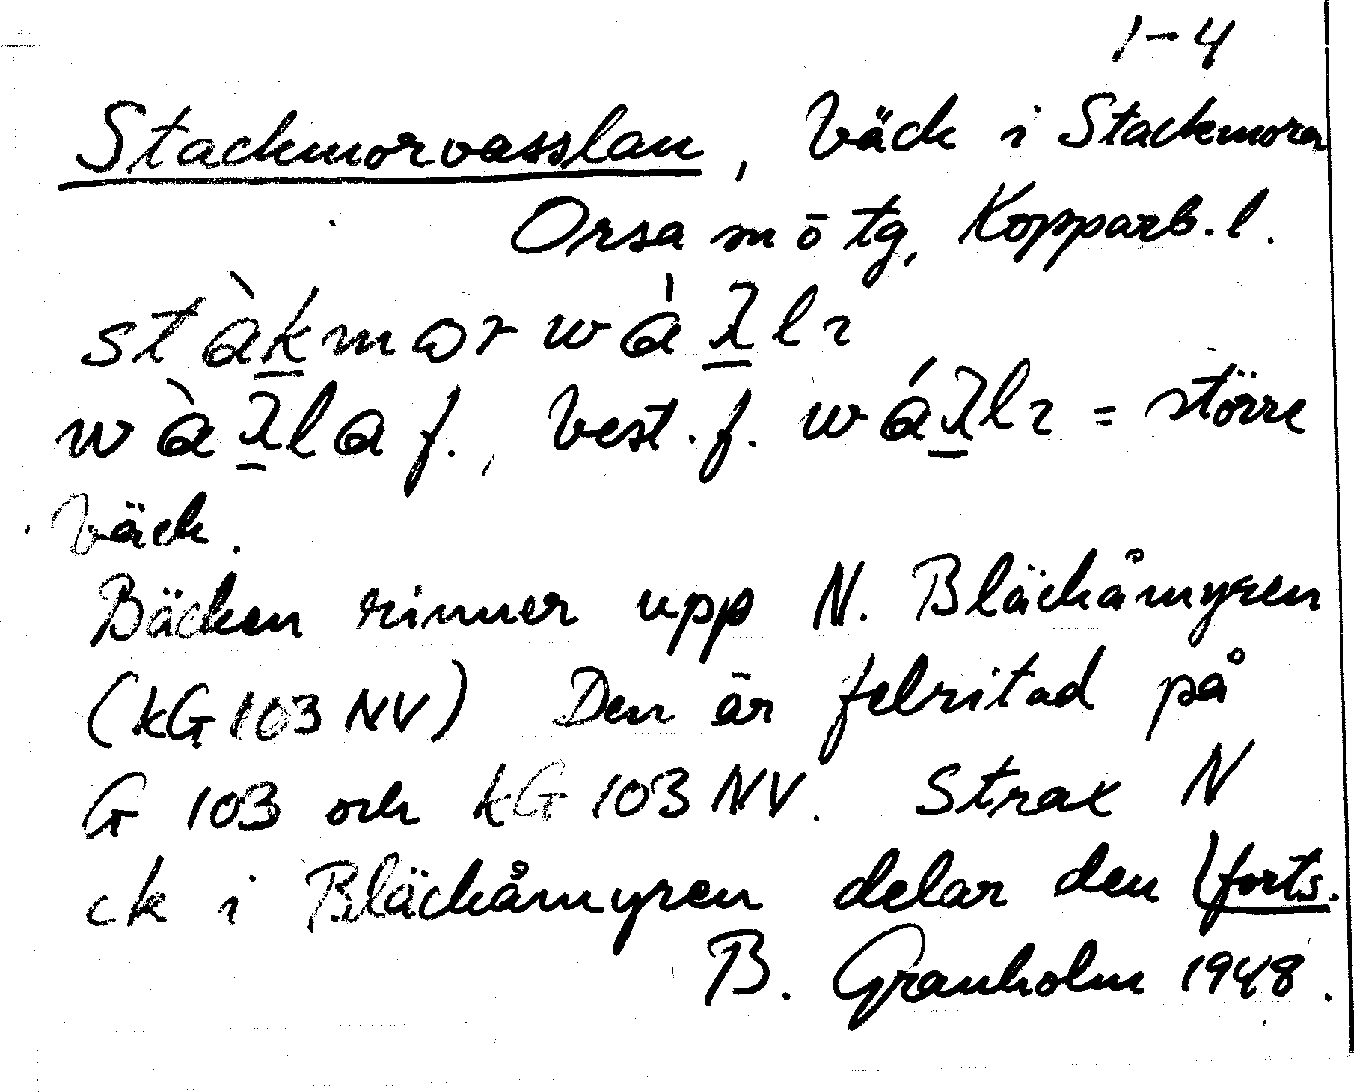 1-4
Stackmorvasslan, bäck i Stackmoren
Orsa m ö tg, Kopparb. l.
stàkmor wàλlɩ
wàλla f., best. f. wáλlɩ = större
bäck.
Bäcken rinner upp N. Bläckåmyren
(kG 103 NV) Den är felritad på
G 103 och kG 103 NV. Strax N
ck i Bläckåmyren delar den (forts.
B. Granholm 1948.